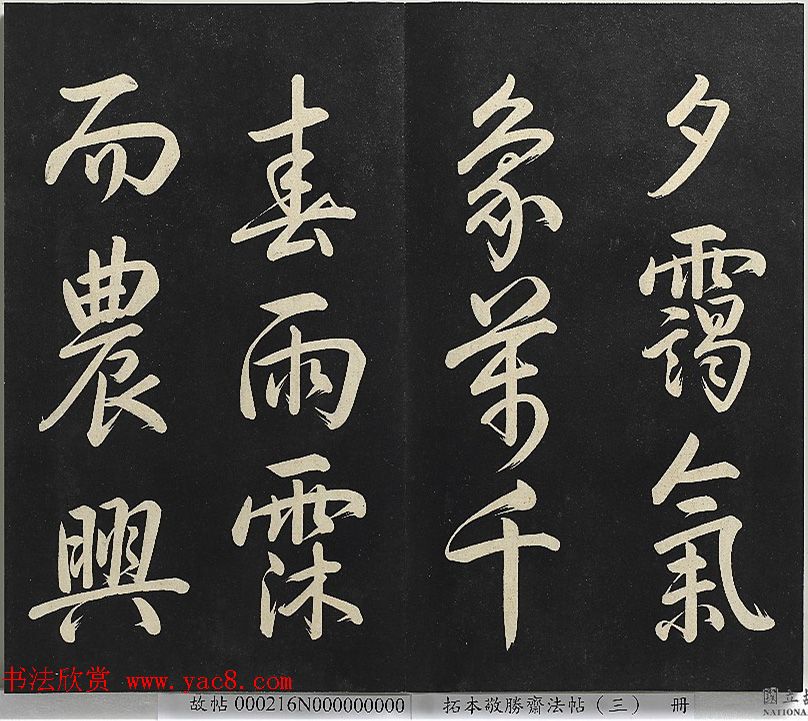 夕靄氣
象萬千
春雨霂
而農興
书法欣赏 www.yac8.com
故帖 000216N000000000
拓本敬勝齋法帖(三) 册
國立
NATIONA